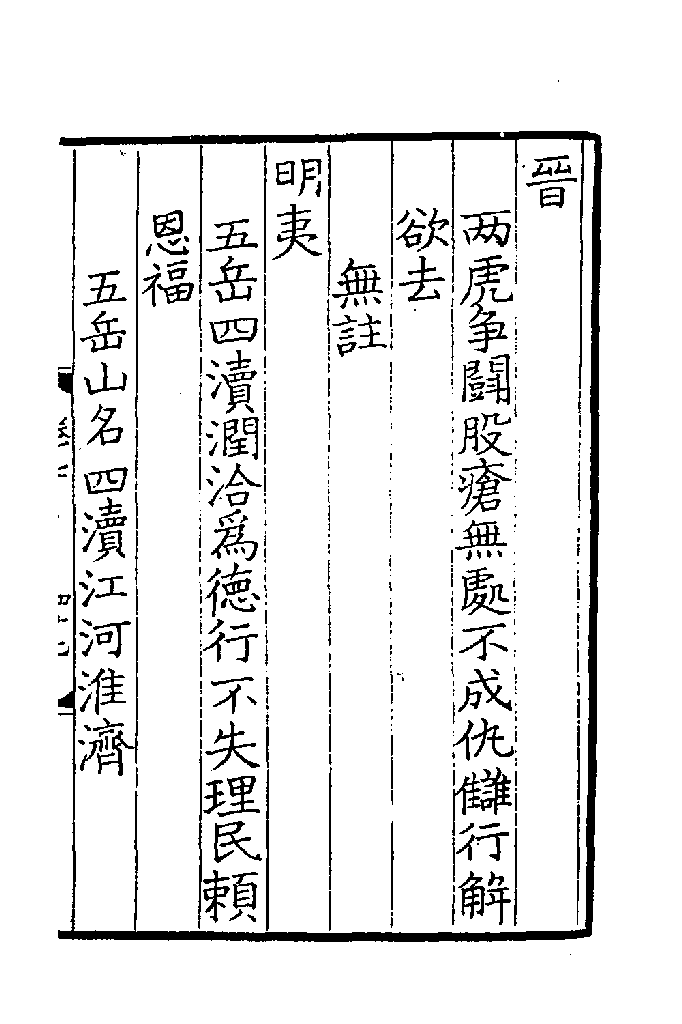 晉
两虎争鬪股瘡無處不成仇讎行解
欲去
無註
明夷
五岳四瀆潤洽爲徳行不失理民頼
恩福
五岳山名四瀆江河淮濟